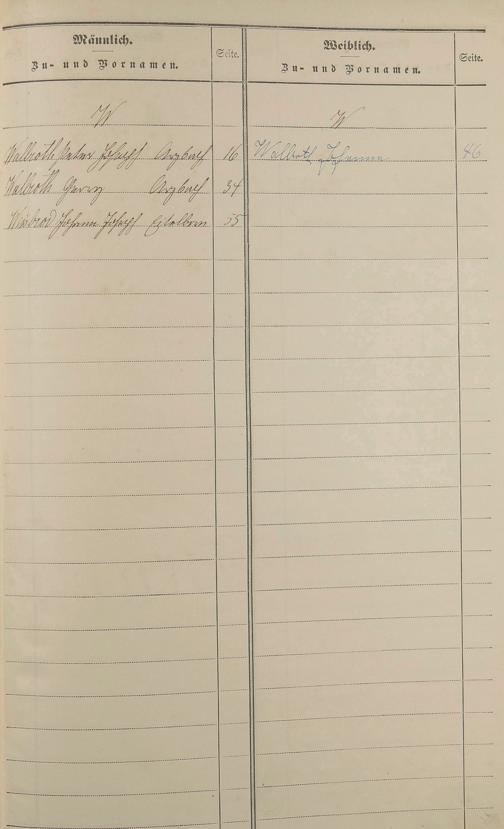 Männlich.
Zu- und Vornamen.
Seite.
W
Wallroth Peter Joseph Arzbach 16
Wallroth Georg Arzbach 34
Johann Joseph Eitelborn 55
Weiblich.
Zu- und Vornamen.
Seite.
W
Wallroth Johanna 46